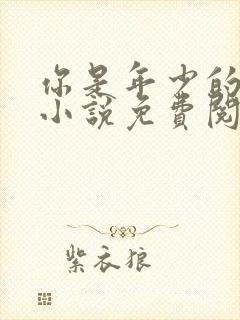 你是年少的
小說免費閱
紫衣狼